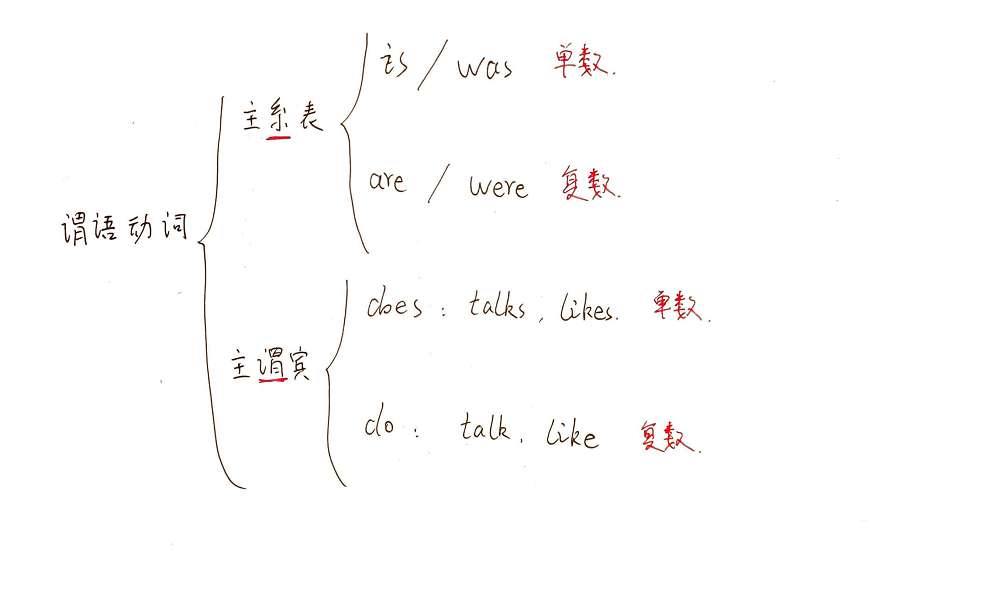 谓语动词
主系表
is / was 单数.
are / were 复数.
主谓宾
does : talks, likes. 单数.
do : talk, like 复数.